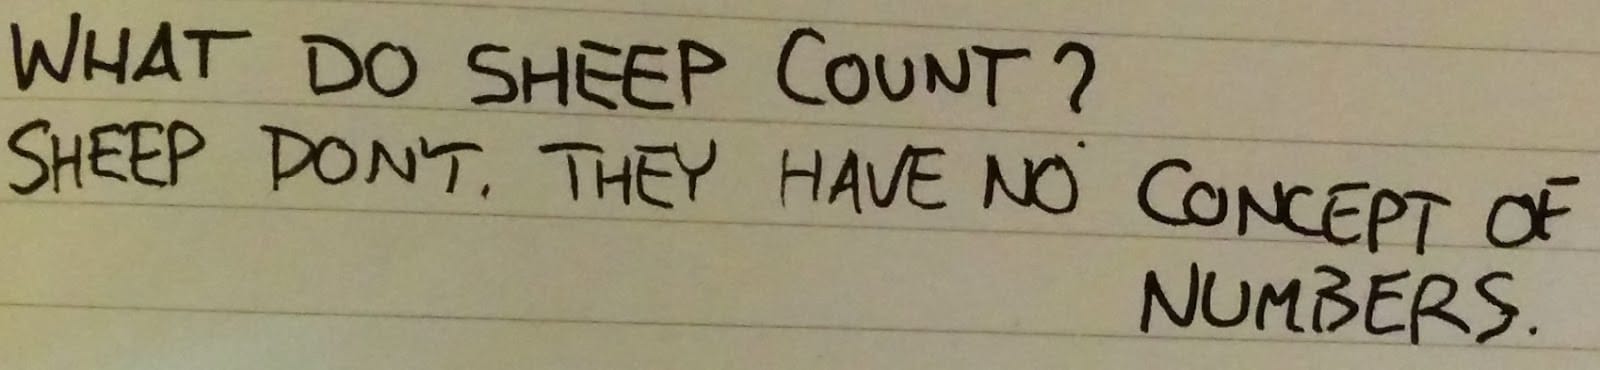 WHAT DO SHEEP COUNT?
SHEEP DON'T. THEY HAVE NO CONCEPT OF
NUMBERS.